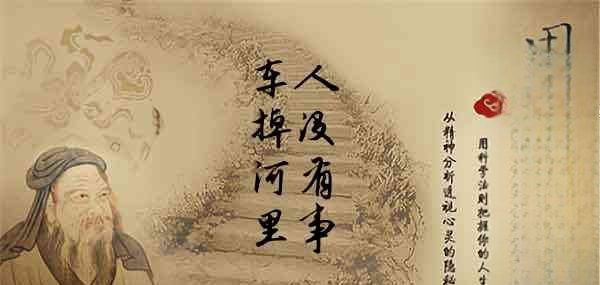 车掉河里
人没有事
从精神分析透视心灵的隐秘
用科学法则把握你的人生